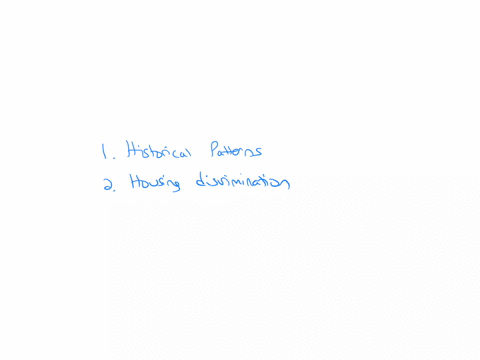 1. Historical Patterns
2. Housing discrimination